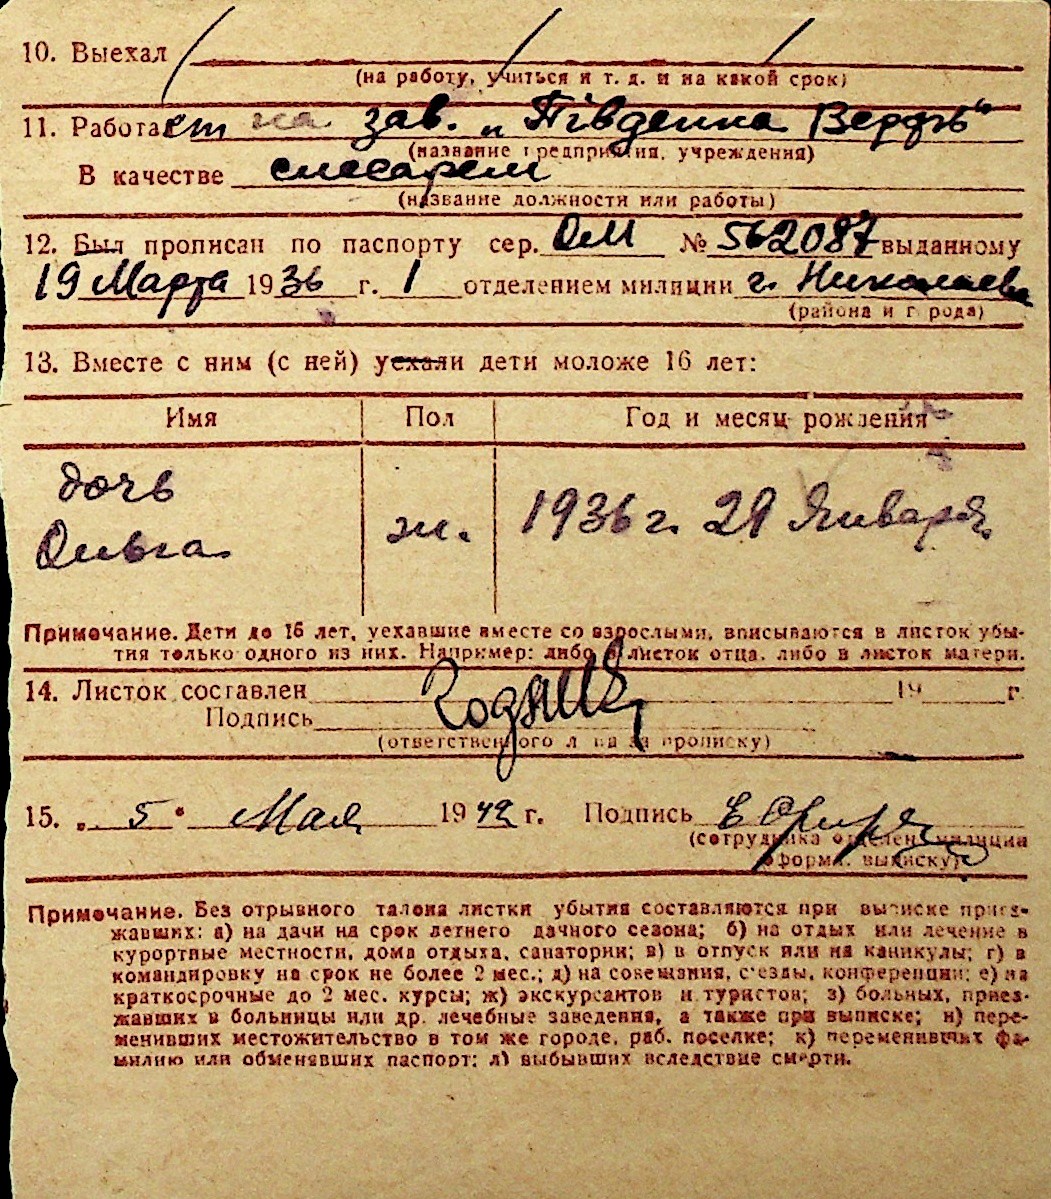 10. Выехал
(на работу, учиться и т. д. и на какой срок)
11. Работает на зав. „Південна Верфь“
(название предприятия, учреждения)
В качестве слесарем
(название должности или работы)
12. Был прописан по паспорту сер. ОМ № 562087 выданному
19 Марта 1936 г. 1 отделением милиции г. Николаева
(района и города)
13. Вместе с ним (с ней) уехали дети моложе 16 лет:
Имя Пол Год и месяц рождения
дочь
Ольга ж. 1936 г. 29 Января
Примечание. Дети до 16 лет, уехавшие вместе со взрослыми, вписываются в листок убы-
тия только одного из них. Например: либо в листок отца, либо в листок матери.
14. Листок составлен 19 г
Подпись
(ответственного лица за прописку)
15. „ 5 “ Мая 1942 г. Подпись
(сотрудника отделен. милиции
оформл. выписку)
Примечание. Без отрывного талона листки убытия составляются при выписке приез-
жавших: а) на дачи на срок летнего дачного сезона; б) на отдых или лечение в
курортные местности, дома отдыха, санатории; в) в отпуск или на каникулы; г) в
командировку на срок не более 2 мес.; д) на совещания, съезды, конференции; е) на
краткосрочные до 2 мес. курсы; ж) экскурсантов и туристов; з) больных, приез-
жавших в больницы или др. лечебные заведения, а также при выписке; и) пере-
менивших местожительство в том же городе, раб. поселке; к) переменивших фа-
милию или обменявших паспорт; л) выбывших вследствие смерти.